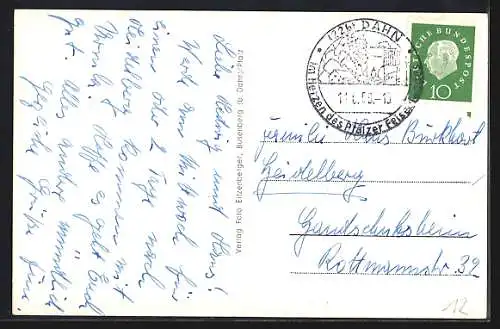 Liebe Hedwig und Hans!
Werde am Mittwoch für
einen oder 2 Tage nach
Heidelberg kommen mit
Hoffe es geht Euch
gut. Alles andere mündlich
Herzliche Grüße Eure
Verlag Foto Eitzenberger, Busenberg (b. Dahn)/Pfalz
(22b) DAHN
im Herzen des Pfälzer Felsen
11.6.59.-15
DEUTSCHE BUNDESPOST
10
Familie Hans Burkhart
Heidelberg
Handschuhsheim
Rottmannstr. 32
12